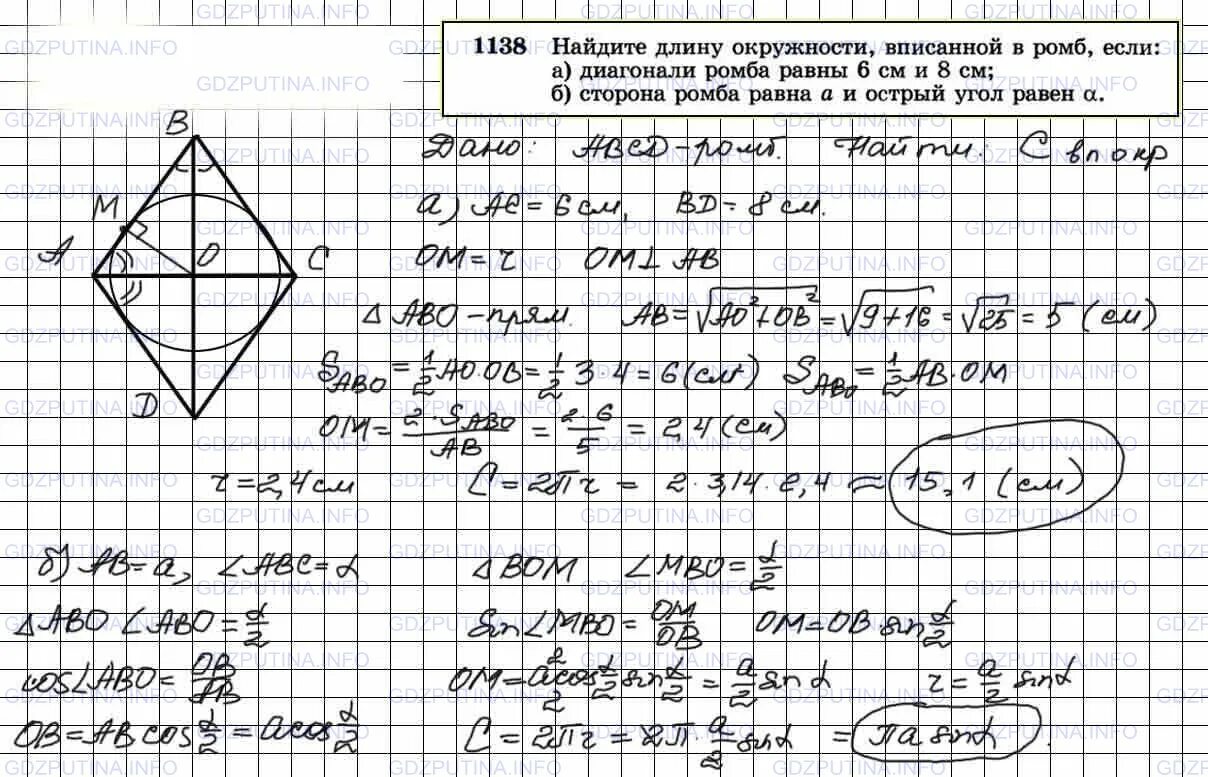 1138 Найдите длину окружности, вписанной в ромб, если:
а) диагонали ромба равны 6 см и 8 см;
б) сторона ромба равна a и острый угол равен α.
Дано: ABCD - ромб. Найти: C вп окр
а) AC = 6 см, BD = 8 см.
OM = r OM ⊥ AB
△ ABO - прям. AB = √AO² + OB² = √9 + 16 = √25 = 5 (см)
S_ABO = 1/2 AO · OB = 1/2 3 · 4 = 6 (см²) S_ABO = 1/2 AB · OM
OM = 2 · S_ABO / AB = 2 · 6 / 5 = 2,4 (см)
r = 2,4 см C = 2πr = 2 · 3,14 · 2,4 ≈ 15,1 (см)
б) AB = a, ∠ABC = α △ BOM ∠MBO = α/2
△ABO ∠ABO = α/2 Sin∠MBO = OM/OB OM = OB · sin α/2
cos∠ABO = OB/AB OM = 2 a cos α/2 sin α/2 / 2 = a/2 sin α r = a/2 sin α
OB = AB cos α/2 = a cos α/2 C = 2πr = 2π · a/2 sin α = πa sin α.
B
M
A
O
C
D
GDZPUTINA.INFO